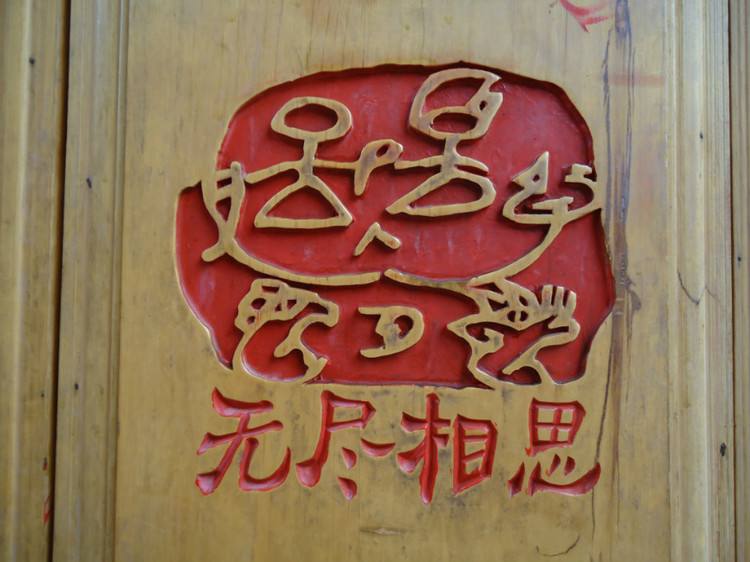 无尽相思